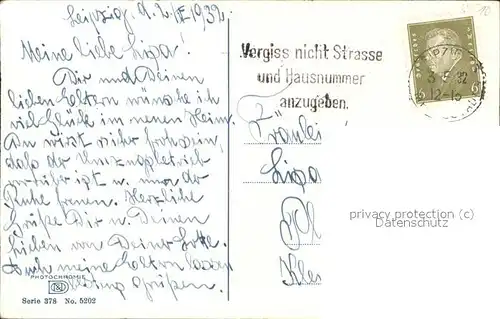 Leipzig, d. 2. VI 1932
Meine liebe Lisa!
Dir und Deinen
lieben Eltern wünsche ich
viel Glück im neuen Heim.
Du wirst sicher froh sein,
daß der Umzugbetrieb
vorüber ist u. nun der
Ruhe freuen. Herzliche
Grüße Dir u. Deinen
Lieben von Deiner Lotte.
Auch meine Eltern lassen
grüßen.
PHOTOCHROMIE
Serie 378 No. 5202
Vergiss nicht Strasse
und Hausnummer
anzugeben.
12-13
6 6
Fräulei
Lisa
privacy protection (c)
Datenschutz